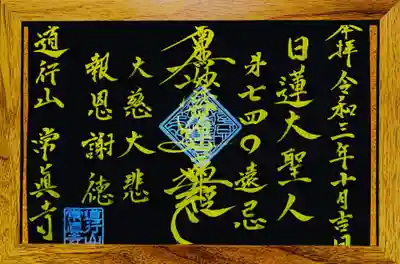 奉拝 令和三年十月吉日
日蓮大聖人
㐧七四〇遠忌
南無妙法蓮華経
大慈大悲
報恩謝徳
道行山 常眞寺